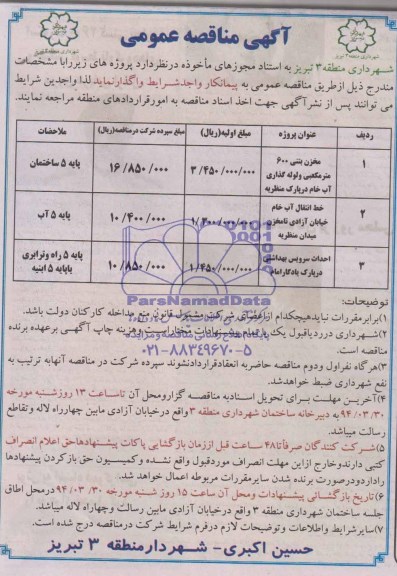 آگهی مناقصه عمومی
شهرداری منطقه ۳ تبریز به استناد مجوزهای مأخوذه درنظردارد پروژه های زیررابا مشخصات
مندرج ذیل ازطریق مناقصه عمومی به پیمانکار واجدشرایط واگذارنماید لذا واجدین شرایط
می توانند پس از نشرآگهی جهت اخذ اسناد مناقصه به امورقراردادهای منطقه مراجعه نمایند.
ردیف عنوان پروژه مبلغ اولیه(ریال) مبلغ سپرده شرکت درمناقصه(ریال) ملاحضات
۱ مخزن بتنی ۶۰۰ مترمکعبی ولوله گذاری آب خام درپارک منظریه ۳/۴۵۰/۰۰۰/۰۰۰ ۱۶/۸۵۰/۰۰۰ پایه ۵ ساختمان
۲ خط انتقال آب خام خیابان آزادی تامخزن میدان منظریه ۱۰/۴۰۰/۰۰۰ پایه ۵ آب
۳ احداث سرویس بهداشتی درپارک یادگارامام ۱/۴۵۰/۰۰۰/۰۰۰ ۱۰/۸۵۰/۰۰۰ پایه ۵ راه وترابری یاپایه ۵ ابنیه
ParsNamadData
۰۲۱-۸۸۳۴۹۶۷۰-۵
توضیحات:
۱)برابرمقررات نبایدهیچکدام ازاعضای شرکت مشمول قانون منع مداخله کارکنان دولت باشد.
۲)شهرداری درردیاقبول یک یا تمام پیشنهادات مختاراست وهزینه چاپ آگهی برعهده برنده
مناقصه است.
۳)هرگاه نفراول ودوم مناقصه حاضربه انعقادقراردادنشوند سپرده شرکت در مناقصه آنهابه ترتیب به
نفع شهرداری ضبط خواهدشد.
۴)آخرین مهلت برای تحویل اسنادبه مناقصه گزارومحل آن تاساعت ۱۳ روزشنبه مورخه
۹۴/۰۳/۳۰ به دبیرخانه ساختمان شهرداری منطقه ۳ واقع درخیابان آزادی مابین چهارراه لاله وتقاطع
رسالت میباشد.
۵)شرکت کنندگان صرفاًتا۴۸ ساعت قبل اززمان بازگشایی پاکات پیشنهادهاحق اعلام انصراف
کتبی دارندوخارج ازاین مهلت انصراف موردقبول واقع نشده وکمیسیون حق بازکردن پیشنهادها
راداردودرصورت برنده شدن سایرمقررات مربوطه اعمال خواهد شد.
۶)تاریخ بازگشائی پیشنهادات ومحل آن ساعت ۱۵ روز شنبه مورخه ۹۴/۰۳/۳۰ درمحل اطاق
جلسه ساختمان شهرداری منطقه ۳ واقع درخیابان آزادی مابین رسالت وچهارراه لاله میباشد.
۷)سایرشرایط واطلاعات وتوضیحات لازم درفرم شرایط شرکت درمناقصه درج شده است.
حسین اکبری- شهردارمنطقه ۳ تبریز